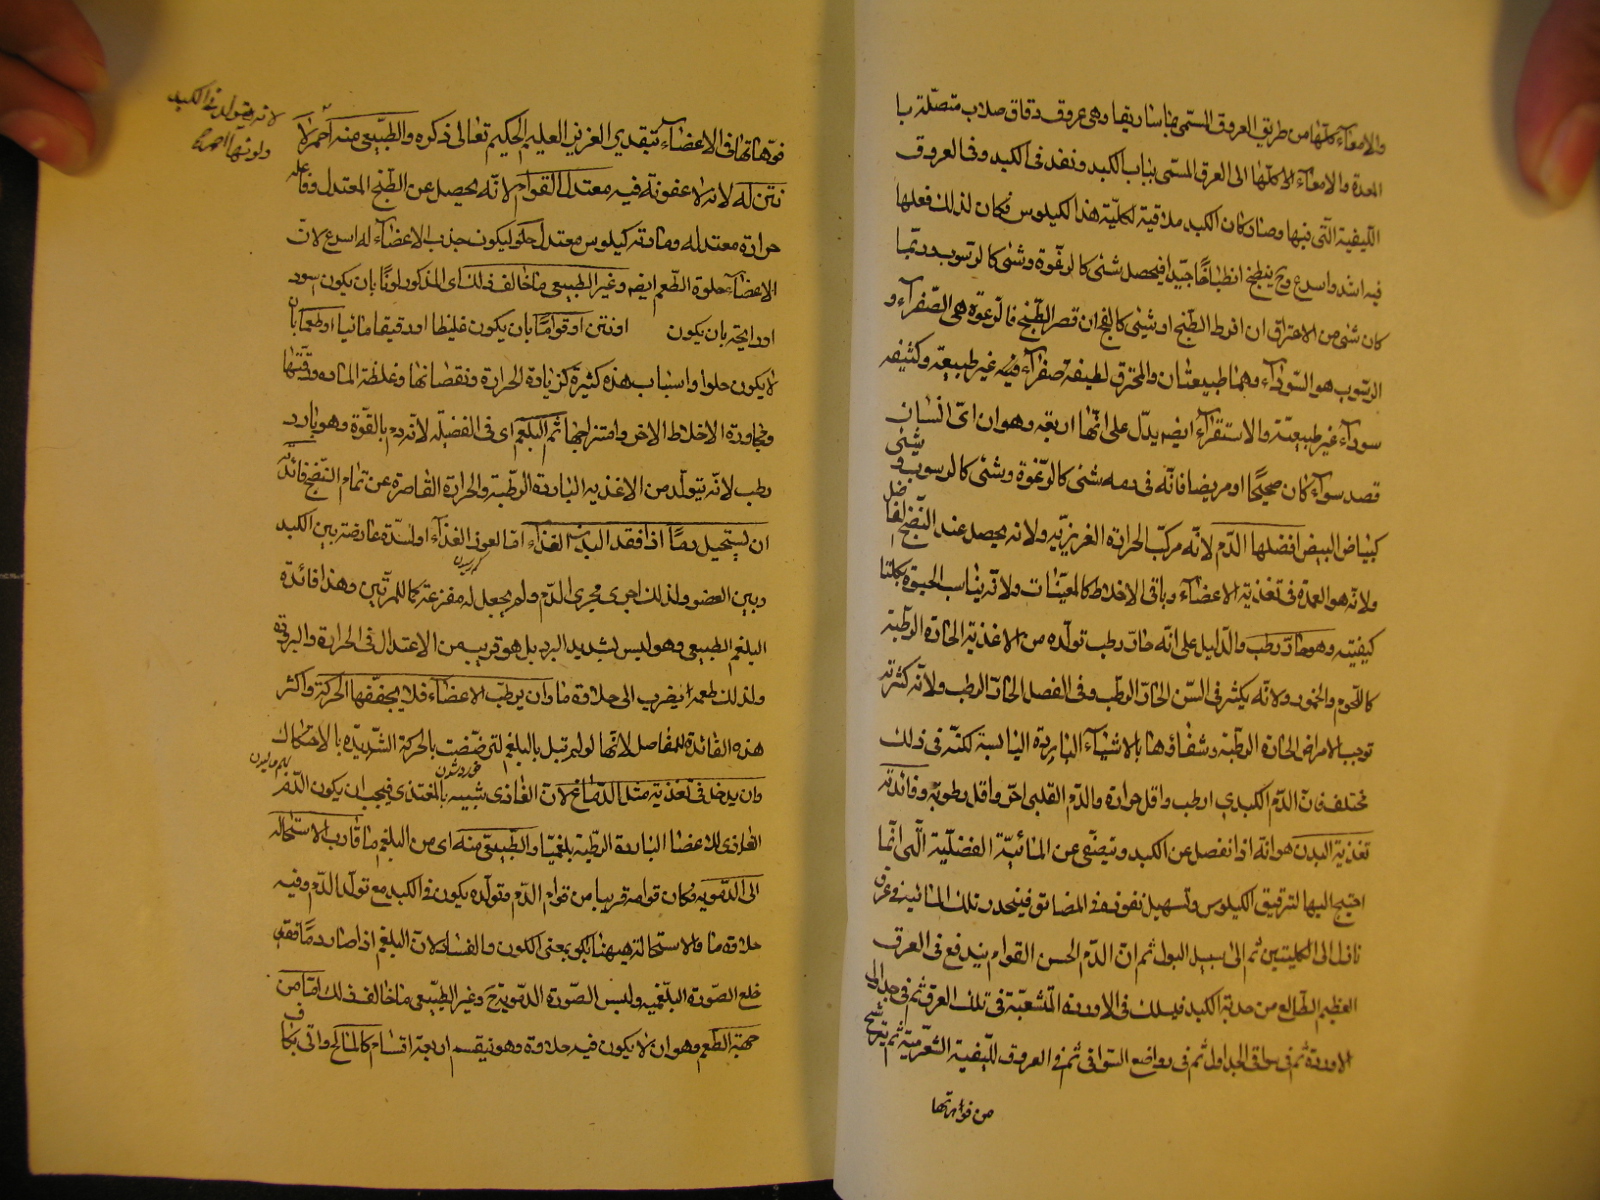 والامعاء كلها من طريق العروق المسمى ماساريقا وهى عروق دقاق صلاب متصلة با
المعدة والامعاء كلها الى العرق المسمى بباب الكبد ونفذ فى الكبد وفى العروق
الليفية التى فيها وصار كان الكبد ملاقية لكلية هذا الكيلوس فكان لذلك فعلها
فيه اشد واسرع وح ينطبخ انطباخًا جيدا فيحصل شئ كالرغوة وشئ كالرسوب وربما
كان شئ من الاحتراق ان افرط الطبخ او شئ كالفج ان قصر الطبخ فالرغوة هى الصفراء و
الرسوب هو السوداء وهما طبيعتان والمحترق لطيفه صفراء غير طبيعية وكثيفه
سوداء غير طبيعية والاستقراء ايضه يدل على انها اربعة وهو ان اى انسان
قصد سواء كان صحيحًا او مريضا فانه فى دمه شئ كالرغوة وشئ كالرسوب و شئ
كبياض البيض افضلها الدم لانه مركب الحرارة الغريزيه ولانه يحصل عند النضج الفاضل
ولانه هو العمدة فى تغذية الاعضاء وباقى الاخلاط كالمعينات ولانه يناسب الحيوة بكلتا
كيفيته وهو حار رطب والدليل على انه حار رطب تولده من الاغذية الحارة الرطبة
كاللحوم والخمور ولانه يكثر فى السن الحار الرطب وفى الفصل الحار الرطب ولانه كثرته
توجب الامراض الحارة الرطبة وشفاؤها بالاشياء الباردة اليابسة لكنه فى ذلك
مختلف فان الدم الكبدى ارطب واقل حرارة والدم القلبى احر واقل رطوبة وفائدته
تغذية البدن هو انه اذا انفصل عن الكبد وتصفى عن المائية الفضلية التى انما
احتيج اليها لترقيق الكيلوس وتسهيل نفوذه فى المضائق فينحدر تلك المائية فى عرق
نازل الى الكليتين ثم الى سبيل البول ثم ان الدم الحسن القوام يندفع فى العرق
العظيم الطالع من حدبة الكبد فيسلك فى الاوردة المتشعبة فى تلك العرق ثم فى جداول
الاوردة ثم فى سواقى الجداول ثم فى رواضع السواقى ثم فى العروق الليفية الشعرية ثم يترشح
من فوهاتها
فوهاتها فى الاعضاء بتقدير العزيز العليم الحكيم تعالى ذكره والطبيعى منه احمر لا
لانه يتولد فى الكبد
ولونها احمر
نتن له لانه لا عفونة فيه معتدل القوام لانه يحصل عن الطبخ المعتدل وفاعله
حرارة معتدله ومادته كيلوس معتدل حلو ليكون جذب الاعضاء له اسرع لان
الاعضاء حلوة الطعم ايضه وغير الطبيعى ما خالف ذلك اى المذكور لونًا بان يكون اسود
او رايحة بان يكون او نتن او قوامًا بان يكون غليظا او رقيقا مائيا او طعما بان
لا يكون حلوا واسباب هذه كثيرة كزيادة الحرارة ونقصانها وغلظة الماده ورقتها
ومجاورة الاخلاط الاخر وامتزاجها ثم البلغم اى فى الفضيلة لانه دم بالقوة وهو بارد
رطب لانه يتولد من الاغذيه الباردة الرطبة والحرارة القاصرة عن تمام النضج فائدته
ان يستحيل دمًا اذا فقد البدن الغذاء اما لعوز الغذاء او لسدة عارضة بين الكبد
وبين العضو ولذلك اجرى مجرى الدم ولم يجعل له مفرغة كما للمرتين وهذا فائدة
البلغم الطبيعى وهو ليس بشديد البرد بل هو قريب من الاعتدال فى الحرارة والبرودة
ولذلك طعمه يضرب الى حلاوة ما وان يرطب الاعضاء فلا يجففها الحركة واكثر
هذه الفائدة للمفاصل لانها لو لم تبل بالبلغم لترضضت بالحركة الشديدة بالاحتكاك
وان يدخل فى تغذية مثل الدماغ لان الغاذى شبيه بالمغتذى فيجب ان يكون الدم
الغاذى للاعضا الباردة الرطبة بلغميا والطبيعى منه اى من البلغم ما قارب الاستحالة
الى الدمويه فكان قوامه قريبا من قوام الدم وتولده يكون فى الكبد مع تولد الدم وفيه
حلاوة ما والاستحالة هيهنا يكون بمعنى الكون والفساد لان البلغم اذا صار دمًا فقد
خلع الصورة البلغميه ولبس الصورة الدموية ح وغير الطبيعى ما خالف ذلك اما من
جهة الطعم وهو ان لا يكون فيه حلاوة وهو ينقسم اربعة اقسام كالمالح واتى بكا